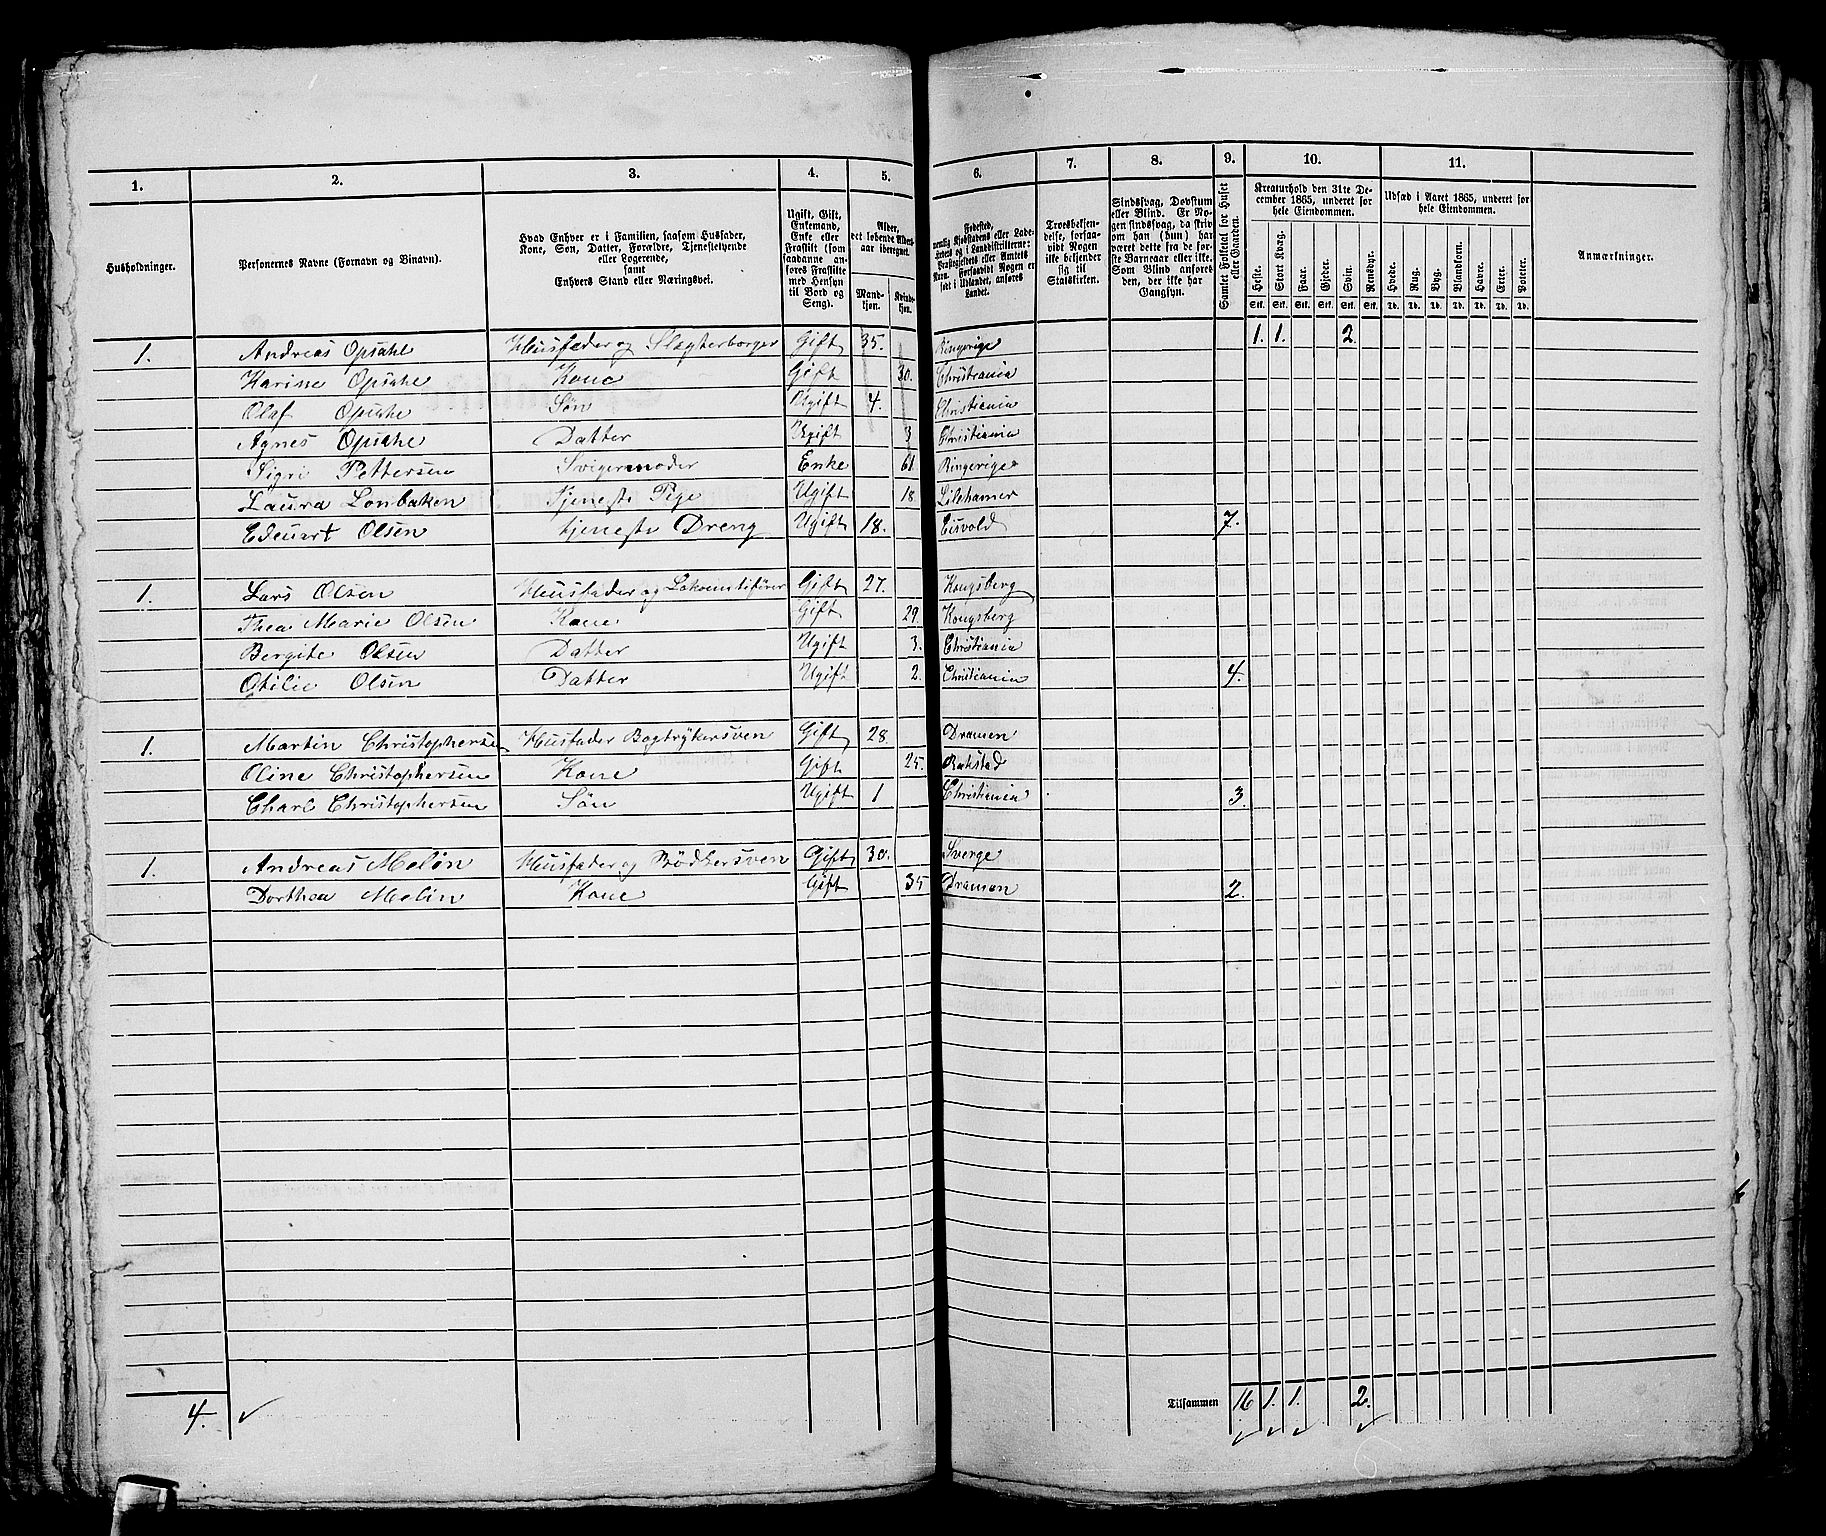 1. 2. 3. 4. 5. 6. 7. 8. 9. 10. 11.
Husholdninger.
Personernes Navne (Fornavn og Binavn).
Hvad Enhver er i Familien, saasom Husfader, Kone, Søn, Datter, Forældre, Tjenestetyende eller Logerende, samt Enhvers Stand eller Næringsvei.
Ugift, Gift, Enkemand, Enke eller Fraskilt (som saadanne anføres Fraskilte med Hensyn til Bord og Seng).
Alder, det løbende Alders-aar iberegnet.
Mand-kjøn. Kvind-kjøn.
Fødested, nemlig Kjøbstadens eller Ladestedets og i Landdistrikterne: Præstegjeldets eller Amtets Navn. Forsaavidt Nogen er født i Udlandet, anføres Landet.
Troesbekjendelse, forsaavidt Nogen ikke bekjender sig til Statskirken.
Sindssvag, Døvstum eller Blind. Er Nogen sindssvag, da skriv om han (hun) har været dette fra de første Barneaar eller ikke. Som Blind anføres den, der ikke har Gangsyn.
Samlet Folketal for Huset eller Gaarden.
Kreaturhold den 31te December 1865, underet for hele Eiendommen.
Heste. Stort Kvæg. Faar. Gjeder. Svin. Rensdyr.
Stk. Stk. Stk. Stk. Stk. Stk.
Udsæd i Aaret 1865, underet for hele Eiendommen.
Hvede. Rug. Byg. Blandkorn. Havre. Erter. Poteter.
Td. Td. Td. Td. Td. Td. Td.
Anmærkninger.
1. Andreas Opsahl Husfader og Slagterborger Gift 35. Ringerige 1. 1. 2.
Karine Opsahl Kone Gift 30. Christiania
Olaf Opsahl Søn Ugift 4. Christiania
Agnes Opsahl Datter Ugift 3 Christiania
Sigri Pettersen Svigermoder Enke 61 Ringerige
Laura Lonbaken Tjeneste Pige Ugift 18 Lilehamer
Eduart Olsen tjeneste Dreng Ugift 18. Eisvold 7.
1. Lars Olsen Husfader og Lokomitifører Gift 27. Kongsberg
Thea Marie Olsen Kone Gift 29. Kongsberg
Bergite Olsen Datter Ugift 3. Christiania
Otilie Olsen Datter Ugift 2. Christiania 4.
1. Martin Christophersen Husfader Bogtrykersven Gift 28. Dramen
Oline Christophersen Kone Gift 25. Rakstad
Charl Christophersen Søn Ugift 1 Christiania 3.
1. Andreas Melin Husfader og Bödkersven Gift 30. Sverge
Dorthea Melin Kone Gift 35 Dramen 2.
4. Tilsammen 16 1. 1. 2.